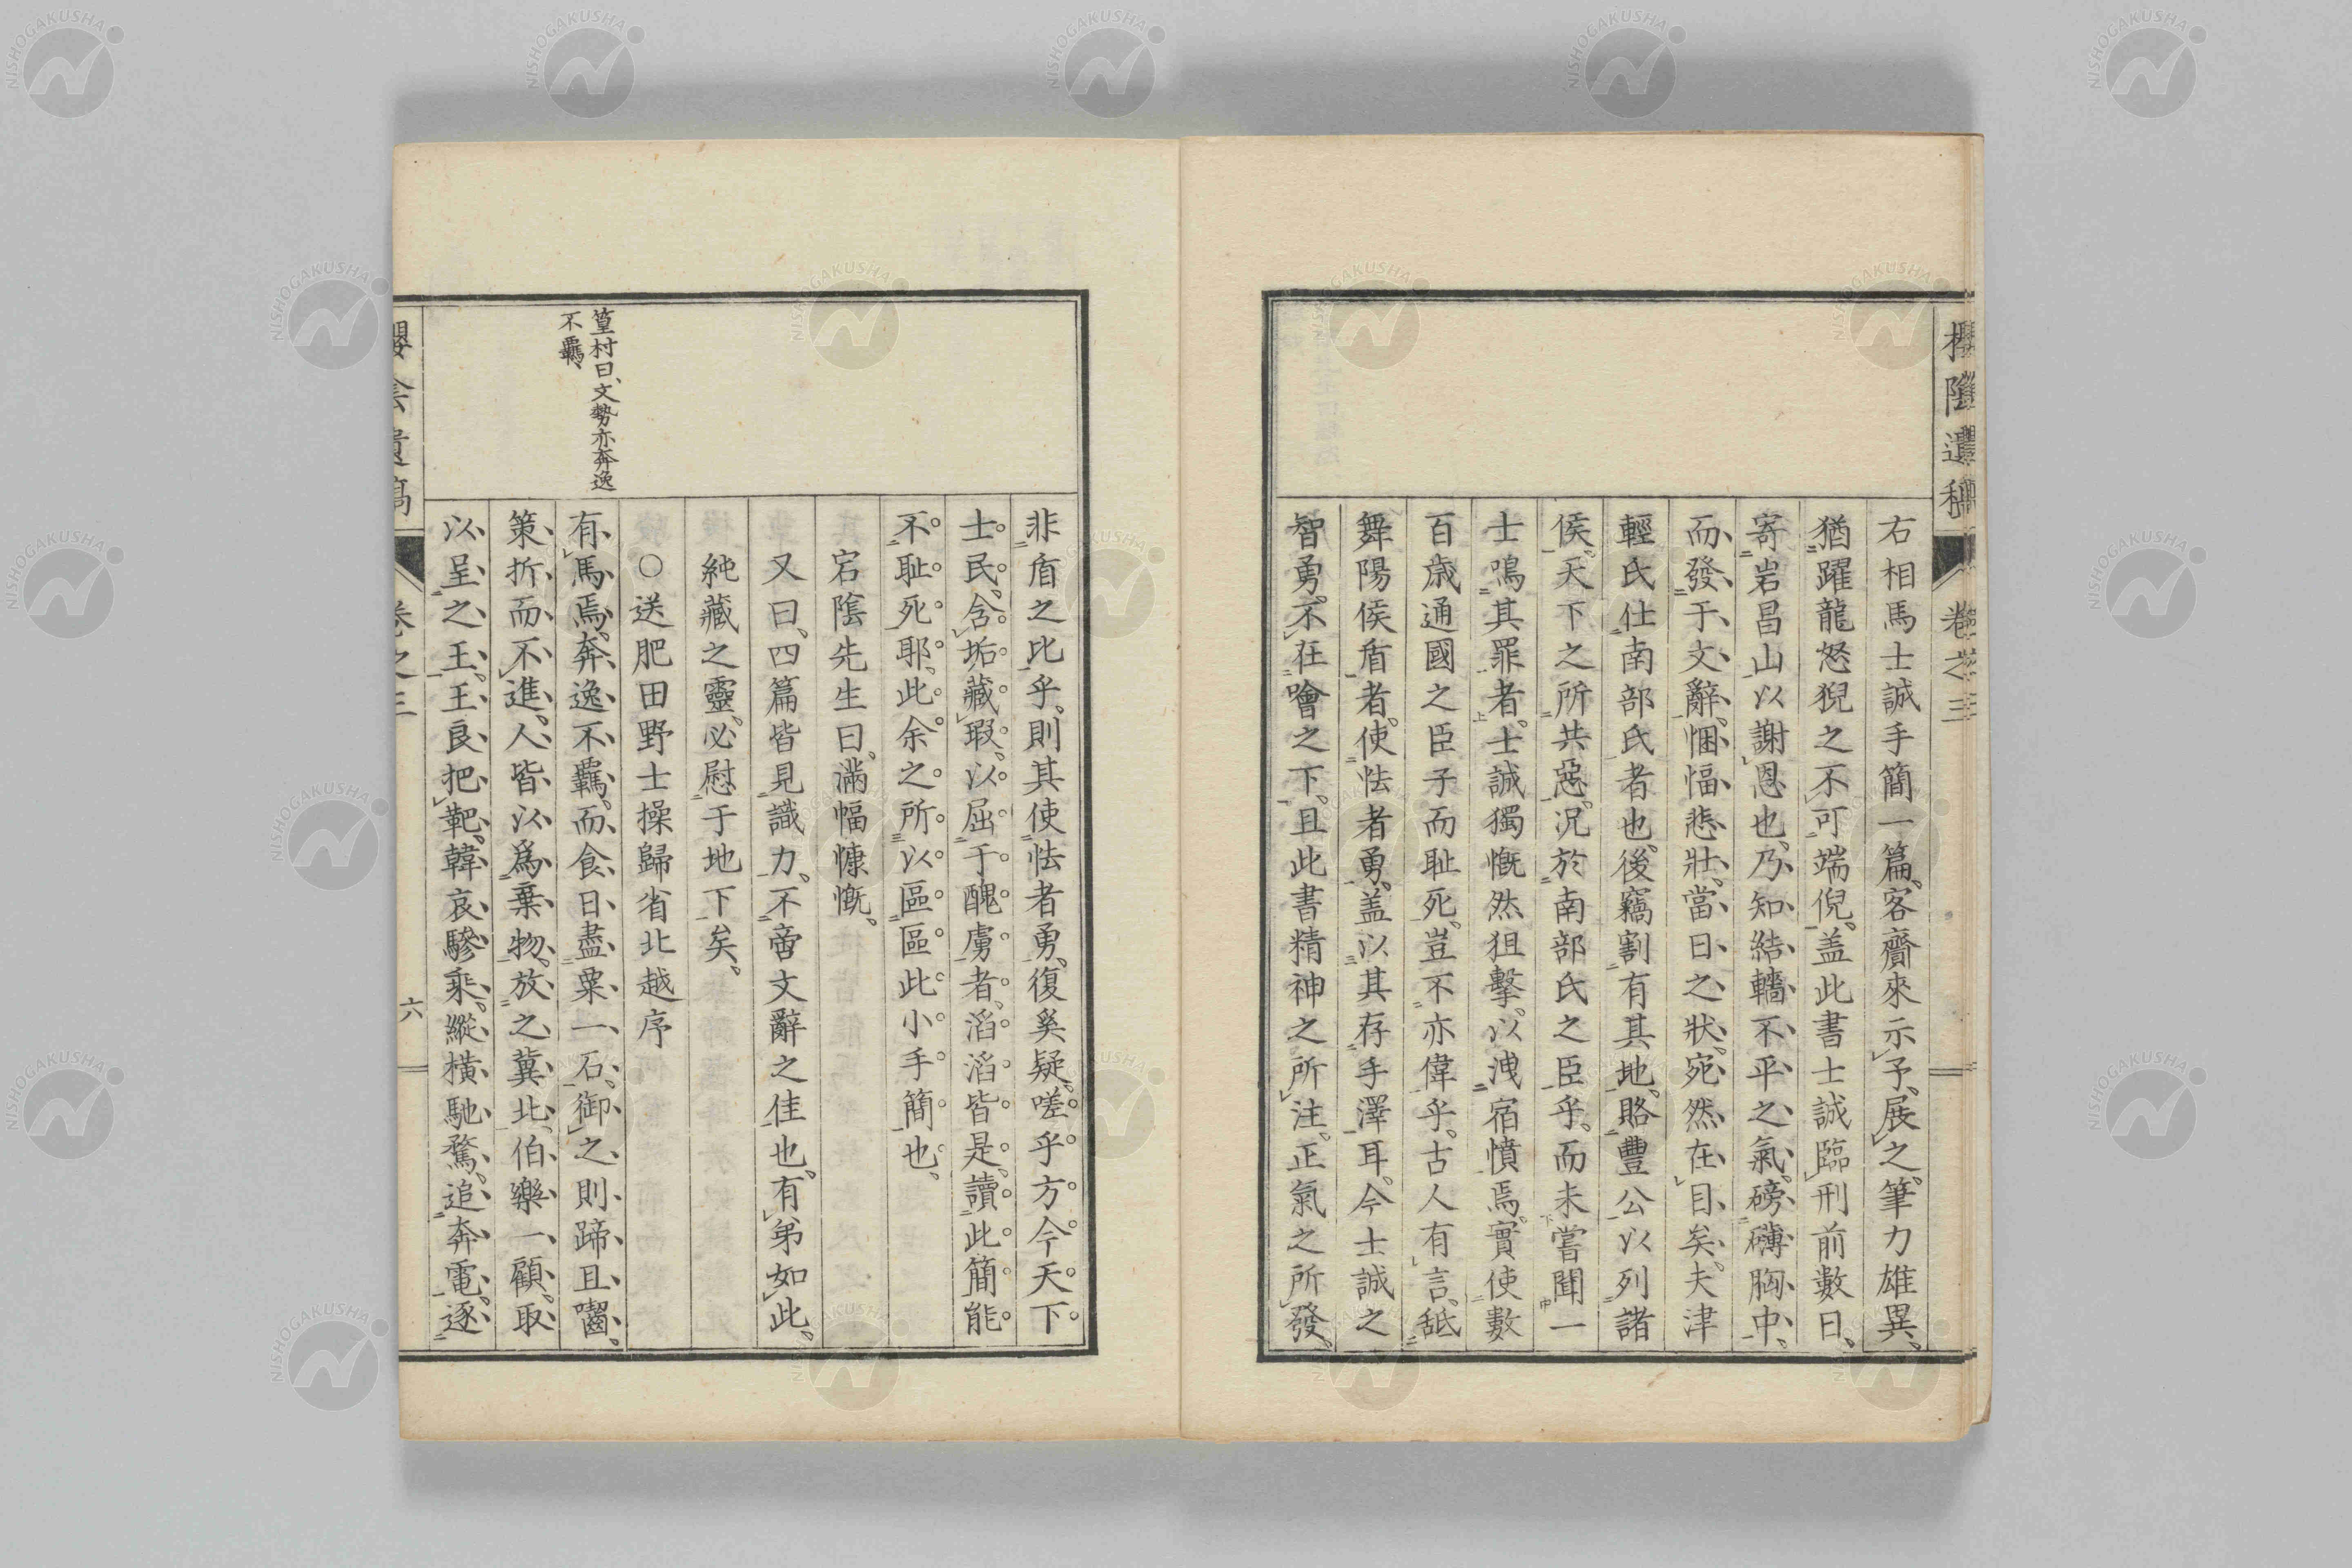 櫻陰遺稿
卷之三
右相馬士誠手簡一篇、客齎來示予、展之、筆力雄異、
猶躍龍怒猊之不可端倪、盖此書士誠臨刑前數日、
寄岩昌山以謝恩也、乃知結轖不平之氣、磅礴胸中、
而發于文辭、悃愊悲壯、當日之狀、宛然在目矣、夫津
輕氏仕南部氏者也、後竊割有其地、賂豐公以列諸
侯、天下之所共惡、況於南部氏之臣乎、而未嘗聞一
士鳴其罪者、士誠獨慨然狙擊、以洩宿憤焉、實使數
百歲通國之臣子而耻死、豈不亦偉乎、古人有言、舐
舞陽侯盾者、使怯者勇、盖以其存手澤耳、今士誠之
智勇、不在噲之下、且此書精神之所注、正氣之所發、
非盾之比乎、則其使怯者勇、復奚疑、嗟乎方今天下
士民、含垢藏瑕、以屈于醜虜者、滔滔皆是、讀此簡能
不耻死耶、此余之所以區區此小手簡也、
宕陰先生曰、滿幅慷慨、
又曰、四篇皆見識力、不啻文辭之佳也、有弟如此、
純藏之靈、必慰于地下矣、
○送肥田野士操歸省北越序
篁村曰、文勢亦奔逸
不羈、
有馬焉、奔逸不羈、而食日盡粟一石、御之則蹄且嚙、
策折而不進、人皆以爲棄物、放之冀北、伯樂一顧、取
以呈之王、王良把靶、韓哀驂乘、縱横馳騖、追奔電、逐
櫻陰遺稿
卷之三
六
NISHOGAKUSHA